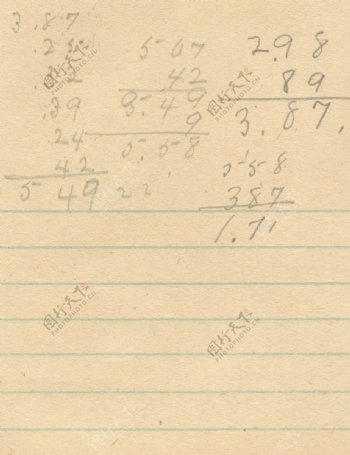 3.87
.25
.32
.39
.24
42
5 49
22
5 07
42
5.49
9
5.58
2.98
89
3.87.
5 58
387
1.71
图行天下
PHOTOPHOTO.CN
图行天下
PHOTOPHOTO.CN
图行天下
PHOTOPHOTO.CN
图行天下
PHOTOPHOTO.CN